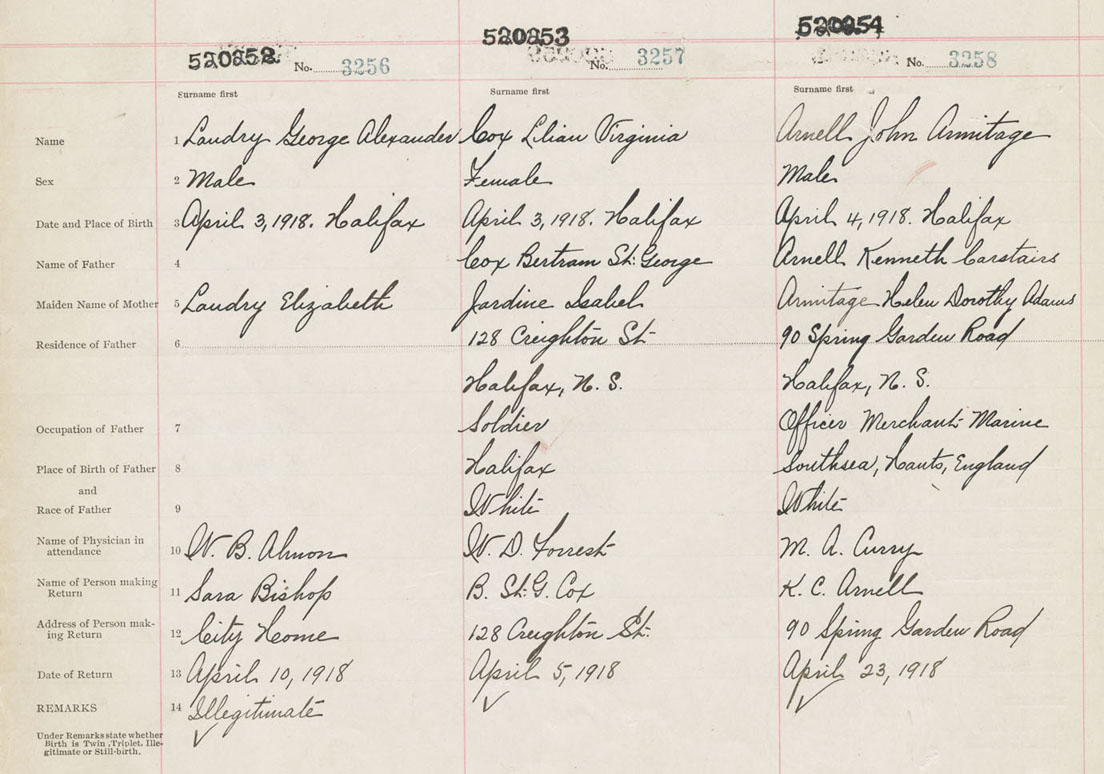 520252 No. 3256 520253 No. 3257 520254 No. 3258
Surname first Surname first Surname first
Name 1 Landry George Alexander Cox Lilian Virginia Arnell John Armitage
Sex 2 Male Female Male
Date and Place of Birth 3 April 3, 1918. Halifax April 3, 1918. Halifax April 4, 1918. Halifax
Name of Father 4 Cox Bertram St. George Arnell Kenneth Carstairs
Maiden Name of Mother 5 Landry Elizabeth Jardine Isabel Armitage Helen Dorothy Adams
Residence of Father 6 128 Creighton St. 90 Spring Garden Road
Halifax, N. S. Halifax, N. S.
Occupation of Father 7 Soldier Officer Merchant Marine
Place of Birth of Father 8 Halifax Southsea, Hants, England
and
Race of Father 9 White White
Name of Physician in
attendance 10 W. B. Almon W. D. Forrest M. A. Curry
Name of Person making
Return 11 Sara Bishop B. St. G. Cox K. C. Arnell
Address of Person mak-
ing Return 12 City Home 128 Creighton St. 90 Spring Garden Road
Date of Return 13 April 10, 1918 April 5, 1918 April 23, 1918
REMARKS 14 Illegitimate
Under Remarks state whether
Birth is Twin, Triplet, Ille-
gitimate or Still-birth.